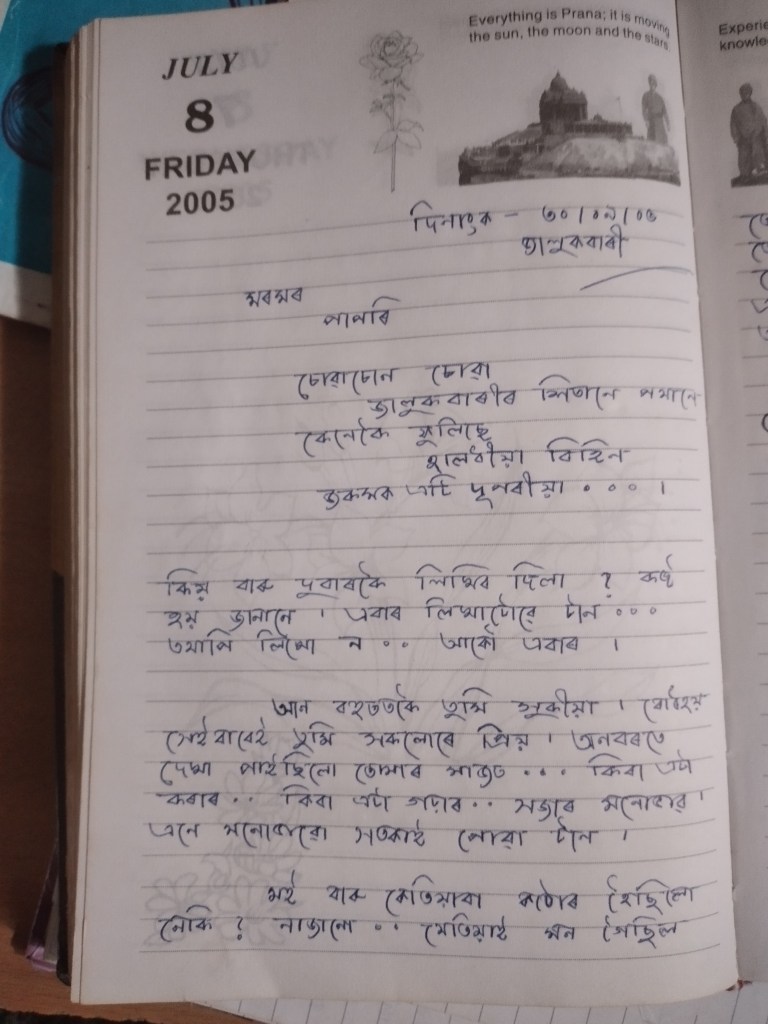 Everything is Prana; it is moving
the sun, the moon and the stars.
Experie
knowle
JULY
8
FRIDAY
2005
দিনাংক - ৩০/০৯/০৬
জালুকবাৰী
মৰমৰ
পাপৰি
চোৱাচোন চোৱা
জালুকবাৰীৰ শিতানে পথানে
কেনেকৈ ফুলিছে
হালধীয়া বিহিন
জকমক এটি দূপৰীয়া ....।
কিয় বাৰু দুবাৰকৈ লিখিব দিলা ? কষ্ট
হয় জানানে । এবাৰ লিখাটোৱে টান ...
তথাপি লিখো ন .. আকৌ এবাৰ ।
আন বহুততকৈ তুমি সুকীয়া । বোধহয়
সেইবাবেই তুমি সকলোৰে প্ৰিয় । অনবৰতে
দেখা পাইছিলো তোমাৰ মাজত ... কিবা এটা
কৰাৰ .. কিবা এটা গঢ়াৰ .. সজাৰ মনোভাৱ ।
এনে মনোভাৱো সতকাই পোৱা টান ।
মই বাৰু কেতিয়াবা কঠোৰ হৈছিলো
নেকি ? নাজানো .. যেতিয়াই মন গৈছিল